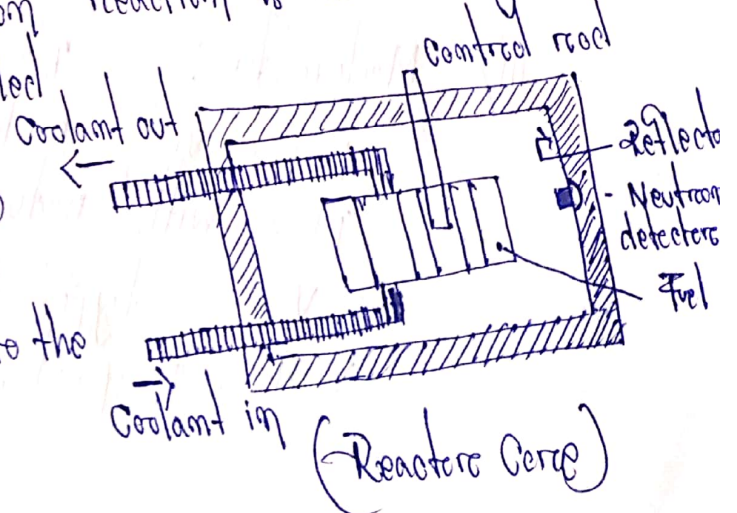 on reaction is
led
Control rod
Coolant out
Reflecto
- Neutron
detectors
Fuel
o the
Coolant in
(Reactore Core)